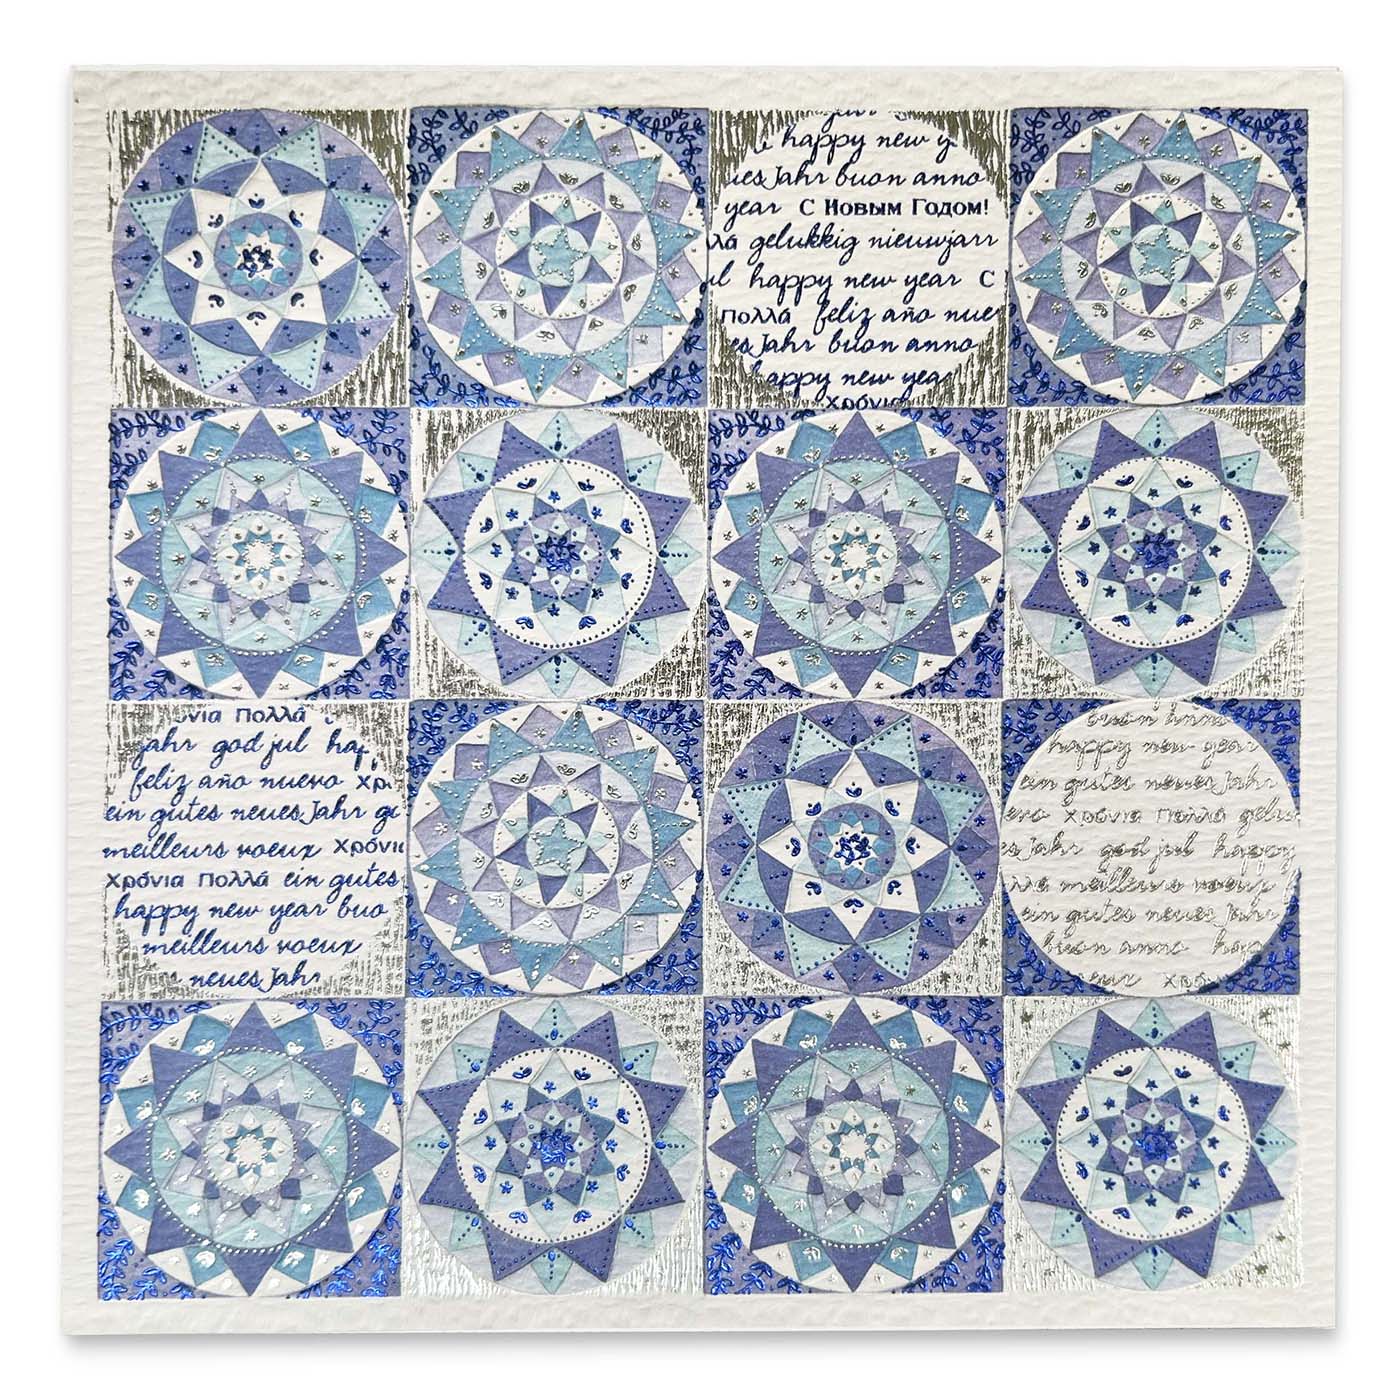 happy new y
Jahr buon anno
year С Новым Годом!
λά gelukkig nieuwjarr
happy new year С
Πολλά feliz año nue
es Jahr buon anno
appy new yea
Χρόνια
όνια Πολλά
Jahr god jul hap
feliz año nuevo Χρ
ein gutes neues Jahr ge
meilleurs voeux Χρόνι
Χρόνια Πολλά ein gutes
happy new year buo
meilleurs voeux
neues Jahr
buon anno
happy new year
ein gutes neues Jahr
evo Χρόνια Πολλά gelu
es Jahr god jul happy
λλά meilleurs voeux
ein gutes neues Jahr
buon anno hap
eur Χρό